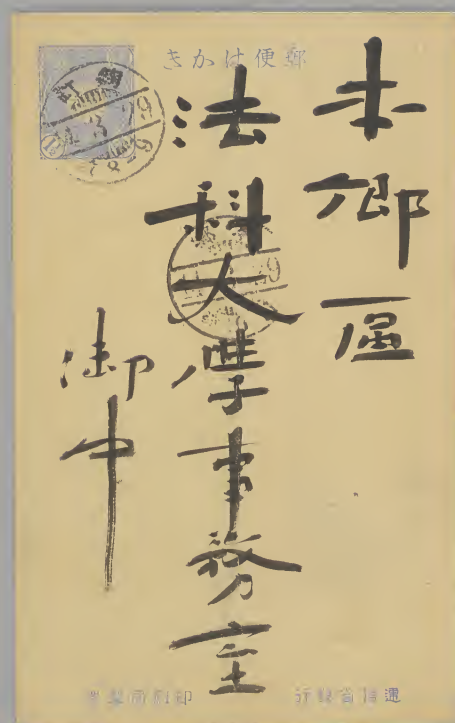 郵便はかき
本郷區
法科大學事務室
御中
遞信省發行
印刷局製造